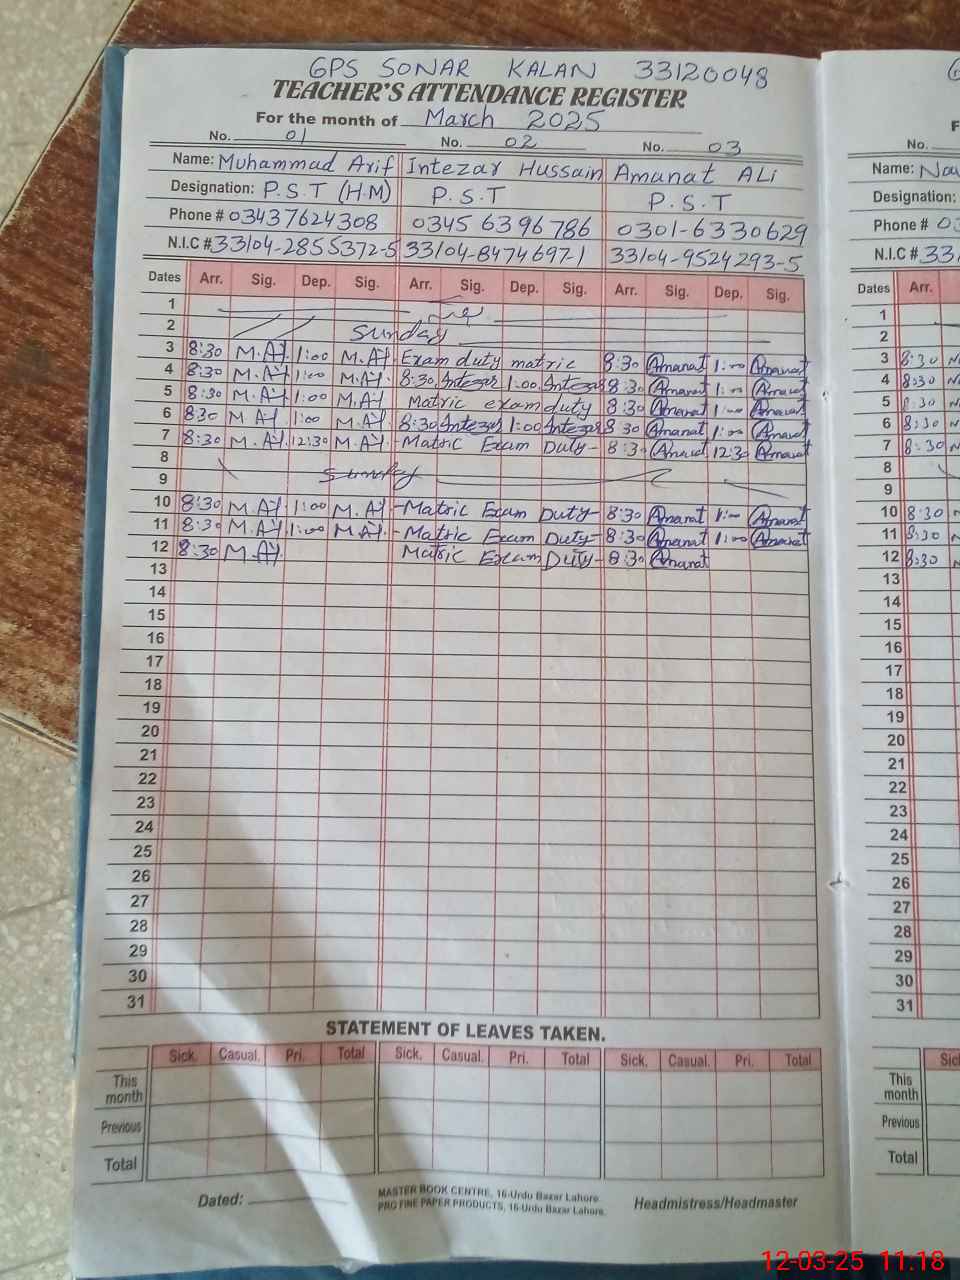 GPS SONAR KALAN 33120048
TEACHER'S ATTENDANCE REGISTER
For the month of March 2025
No. 01 No. 02 No. 03 No.
Name: Muhammad Arif Intezar Hussain Amanat ALi Name:
Designation: P.S.T (H.M) P.S.T P.S.T Designation:
Phone # 03437624308 0345 6396786 0301-6330629 Phone # 03
N.I.C # 33104-2855372-5 33104-8474697-1 33104-9524293-5 N.I.C # 33
Dates Arr. Sig. Dep. Sig. Arr. Sig. Dep. Sig. Arr. Sig. Dep. Sig. Dates Arr.
1 1
2 Sunday 2
3 8:30 M.Af 1:00 M.Af Exam duty matric 8:30 Amanat 1:00 Amanat 3 8:30
4 8:30 M.Af 1:00 M.Af 8:30 Intezar 1:00 Intezar 8:30 Amanat 1:00 Amanat 4 8:30
5 8:30 M.Af 1:00 M.Af Matric exam duty 8:30 Amanat 1:00 Amanat 5 8:30
6 8:30 M.Af 1:00 M.Af 8:30 Intezar 1:00 Intezar 8:30 Amanat 1:00 Amanat 6 8:30
7 8:30 M.Af 12:30 M.Af -Matric Exam Duty- 8:30 Amanat 12:30 Amanat 7 8:30
8 8
9 Sunday 9
10 8:30 M.Af 1:00 M.Af -Matric Exam Duty- 8:30 Amanat 1:00 Amanat 10 8:30
11 8:30 M.Af 1:00 M.Af -Matric Exam Duty- 8:30 Amanat 1:00 Amanat 11 8:30
12 8:30 M.Af Matric Exam Duty- 8:30 Amanat 12 8:30
13 13
14 14
15 15
16 16
17 17
18 18
19 19
20 20
21 21
22 22
23 23
24 24
25 25
26 26
27 27
28 28
29 29
30 30
31 31
STATEMENT OF LEAVES TAKEN.
Sick. Casual. Pri. Total Sick. Casual. Pri. Total Sick. Casual. Pri. Total
This month This month
Previous Previous
Total Total
Dated: MASTER BOOK CENTRE, 16-Urdu Bazar Lahore. Headmistress/Headmaster
PRO FINE PAPER PRODUCTS, 16-Urdu Bazar Lahore.
12-03-25 11.18